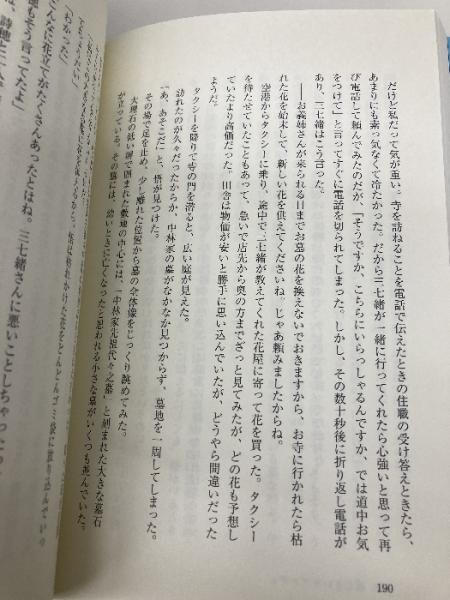 だけど私だって気が重い。寺を訪ねることを電話で伝えたときの住職の受け答えときたら、
あまりにも素っ気なくて冷たかった。だから三七緒が一緒に行ってくれたら心強いと思って再
び電話して頼んでみたのだが、「そうですか、こちらにいらっしゃるんですか、では道中お気
をつけて」と言ってすぐに電話を切られてしまった。しかし、その数十秒後に折り返し電話が
あり、三七緒はこう言った。
――お義姉さんが来られる日までお墓の花を換えないでおきますから、お寺に行かれたら枯
れた花を始末して、新しい花を供えてくださいね。じゃあ頼みましたからね。
空港からタクシーに乗り、途中で三七緒が教えてくれた花屋に寄って花を買った。タクシー
を待たせていたこともあって、急いで店先から奥の方までざっと見てみたが、どの花も予想し
ていたより高価だった。田舎は物価が安いと勝手に思い込んでいたが、どうやら間違いだった
ようだ。
タクシーを降りて寺の門を潜ると、広い庭が見えた。
訪れたのが久々だったからか、中林家の墓がなかなか見つからず、墓地を一周してしまった。
「あ、あそこだ」と、悟が見つけた。
その場で足を止め、少し離れた位置から墓の全体像をじっくり眺めてみた。
大理石の低い塀で囲まれた敷地の中心には、「中林家先祖代々之墓」と刻まれた大きな墓石
が立っている。その横には、幼いときに亡くなったと思われる小さな墓がいくつも並んでいた。
「わかった」
こんなに花立てがたくさんあったとはね。三七緒さんに悪いことしちゃったっ
190